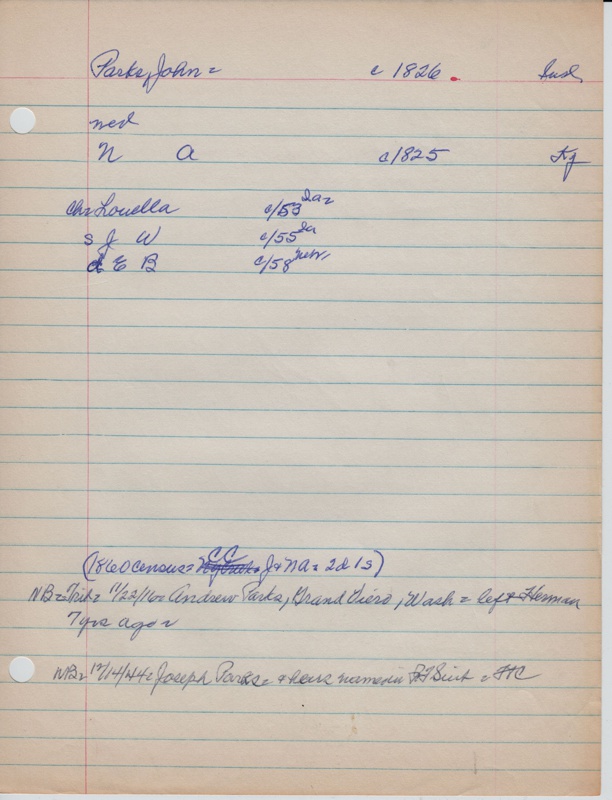 Parks, John = c 1826. Ind,
med
N A c/825 Ky
ch= Louella c/53 Ia=
s J W c/55 Ia
d E B c/58 Nebr,
(1860 census = CC J + NA = 2d 1s)
NB = Trib = 11/22/16 = Andrew Parks, Grand View, Wash = left Herman
7 yrs ago =
NB = 12/14/44 = Joseph Parks = + names in =